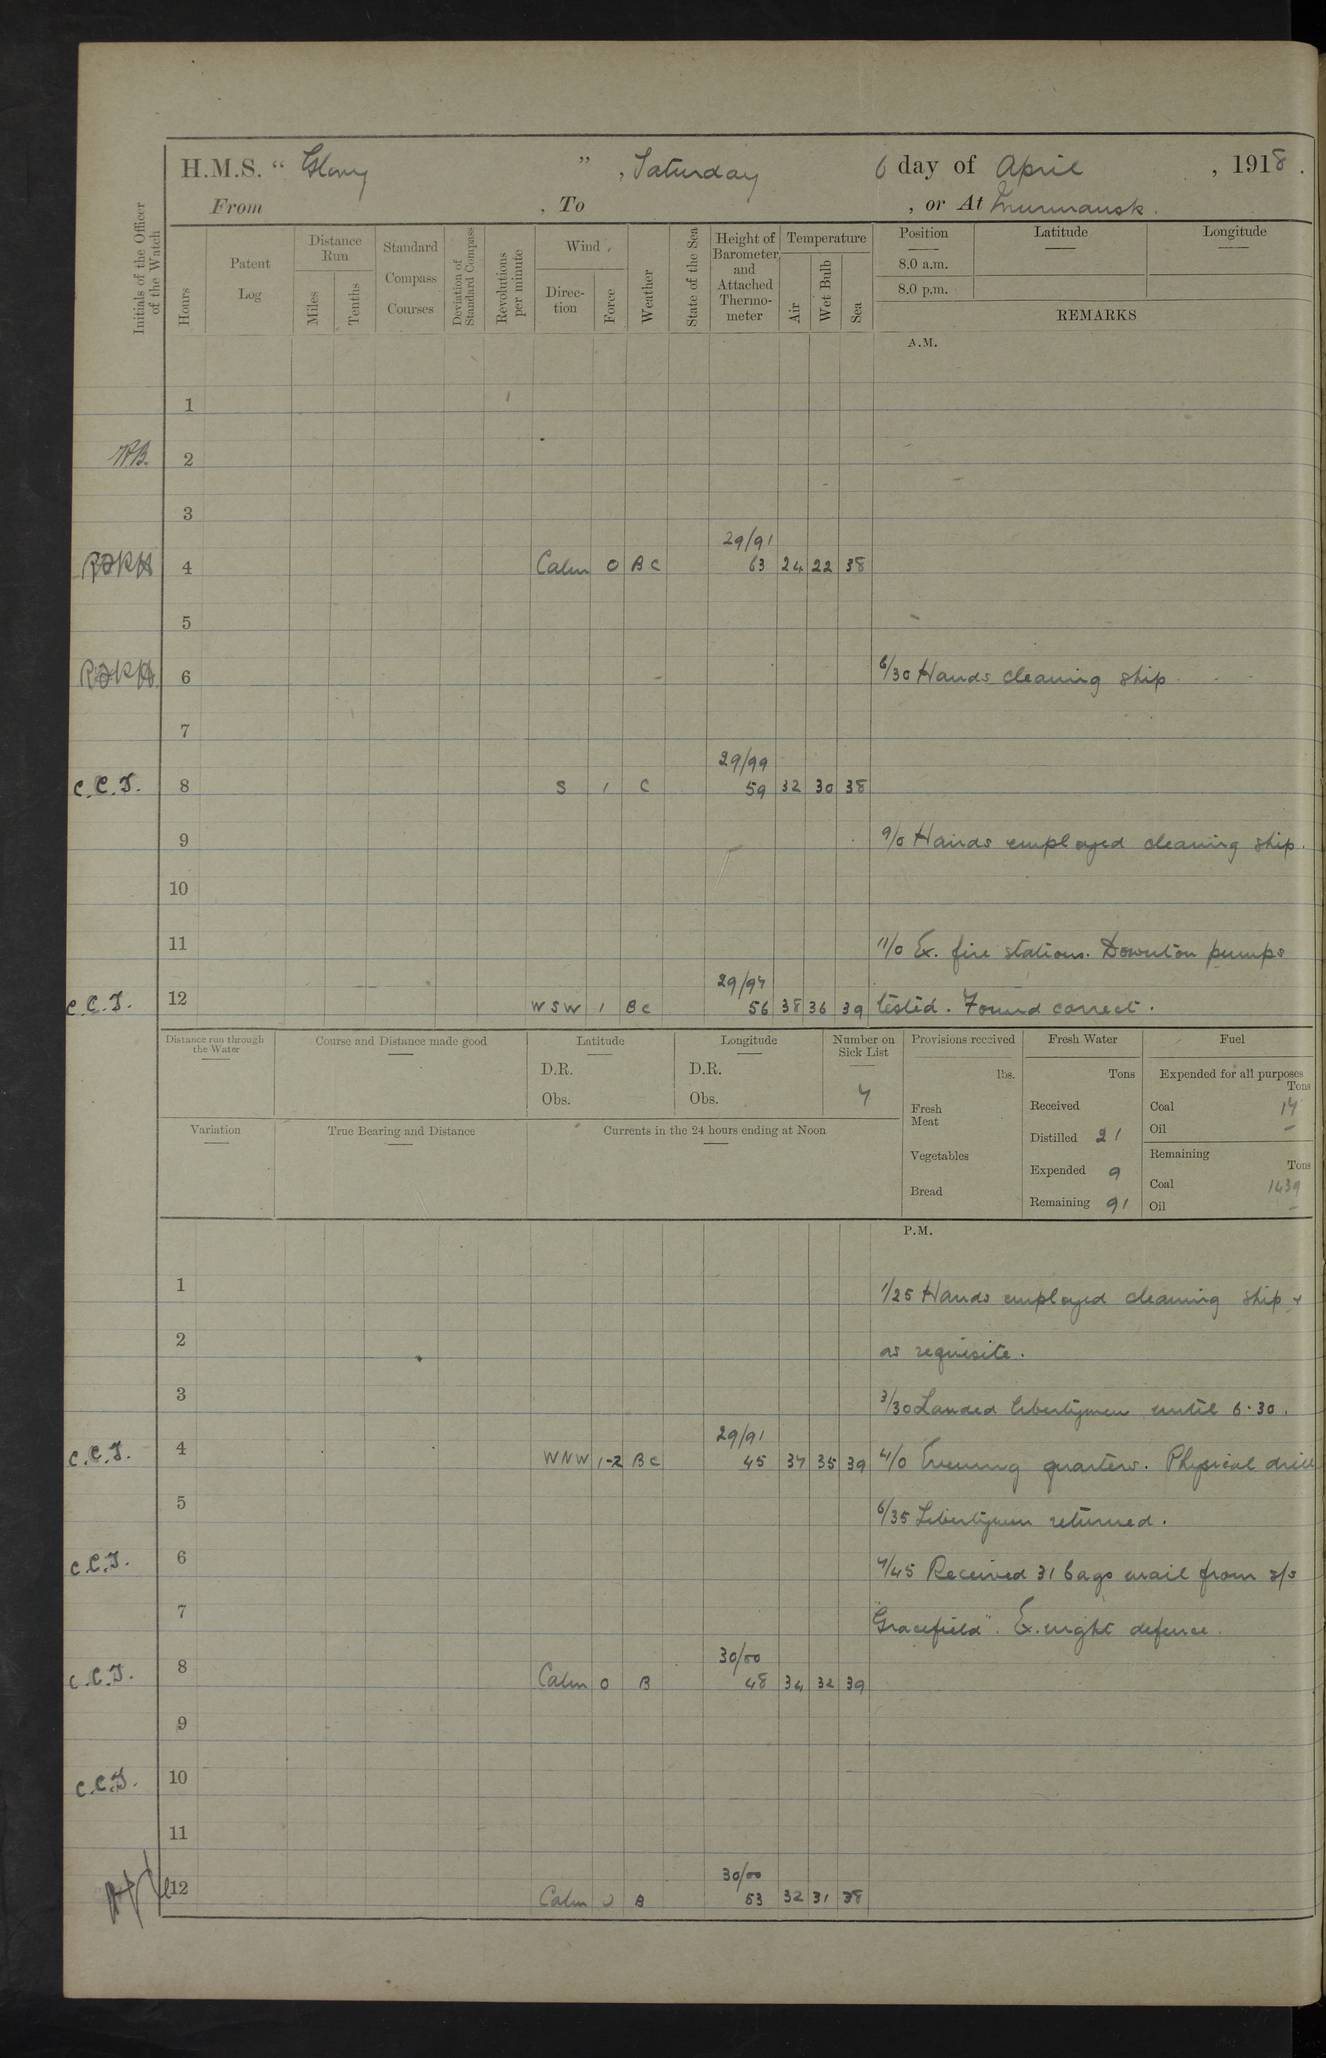 H.M.S. " Glory ", Saturday 6 day of April, 1918.
From , To , or At Murmansk.
Initials of the Officer of the Watch
Hours
Patent Log
Distance Run
Miles
Tenths
Standard Compass Courses
Deviation of Standard Compass
Revolutions per minute
Wind
Direction
Force
Weather
State of the Sea
Height of Barometer and Attached Thermometer
Temperature
Air
Wet Bulb
Sea
Position
Latitude
Longitude
8.0 a.m.
8.0 p.m.
REMARKS
A.M.
1
2
3
29/91
4 Calm 0 B C 63 24 22 38
5
6 6/30 Hands cleaning ship
7
29/99
C.C.T. 8 S 1 C 59 32 30 38
9 9/0 Hands employed cleaning ship.
10
11 11/0 Ex. fire stations. Downton pumps
29/97
C.C.T. 12 WSW 1 B C 56 38 36 39 tested. Found correct.
Distance run through the Water
Course and Distance made good
Latitude
D.R.
Obs.
Longitude
D.R.
Obs.
Number on Sick List
7
Provisions received
lbs.
Fresh Meat
Vegetables
Bread
Fresh Water
Tons
Received
Distilled 21
Expended 9
Remaining 91
Fuel
Expended for all purposes
Tons
Coal 17
Oil –
Remaining
Tons
Coal 1439
Oil –
Variation
True Bearing and Distance
Currents in the 24 hours ending at Noon
P.M.
1 1/25 Hands employed cleaning ship &
2 as requisite.
3 3/30 Landed libertymen until 6.30.
29/91
C.C.T. 4 WNW 1-2 B C 45 37 35 39 4/0 Evening quarters. Physical drill
5 6/35 Libertymen returned.
C.C.T. 6 7/45 Received 31 bags mail from s/s
7 "Gracefield". Ex. night defence.
30/00
C.C.T. 8 Calm 0 B 48 34 32 39
9
C.C.T. 10
11
30/00
12 Calm 0 B 53 32 31 38